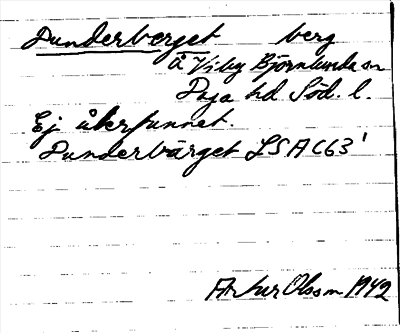 Dunderberget berg
å Viby Björnlunda sn
Daga hd Söd. l.
Ej återfunnet.
Dunderbärget LSA C63¹
Arthur Olsson 1942